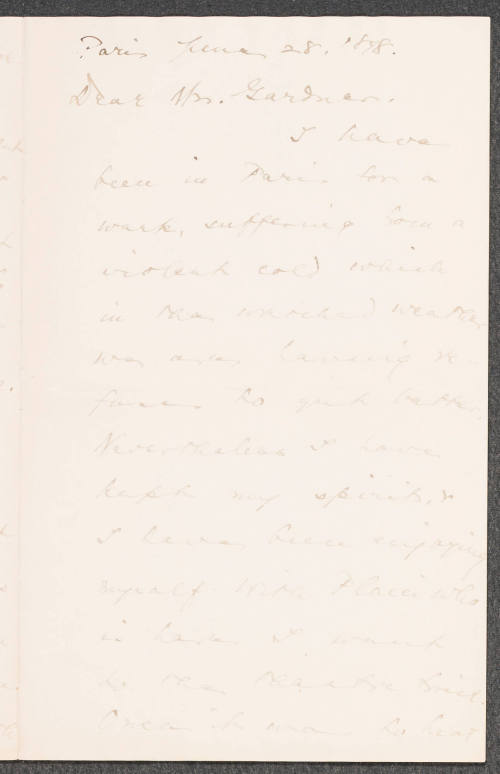 Paris June 28. 1898.
Dear Mrs. Gardner.
I have
been in Paris for a
week, suffering from a
violent cold which
in the wretched weather
we are having re-
fuses to get better
Nevertheless I have
kept my spirits, &
I have been enjoying
myself with Placci who
is here. I went
to the theatre twice
Once it was to hear